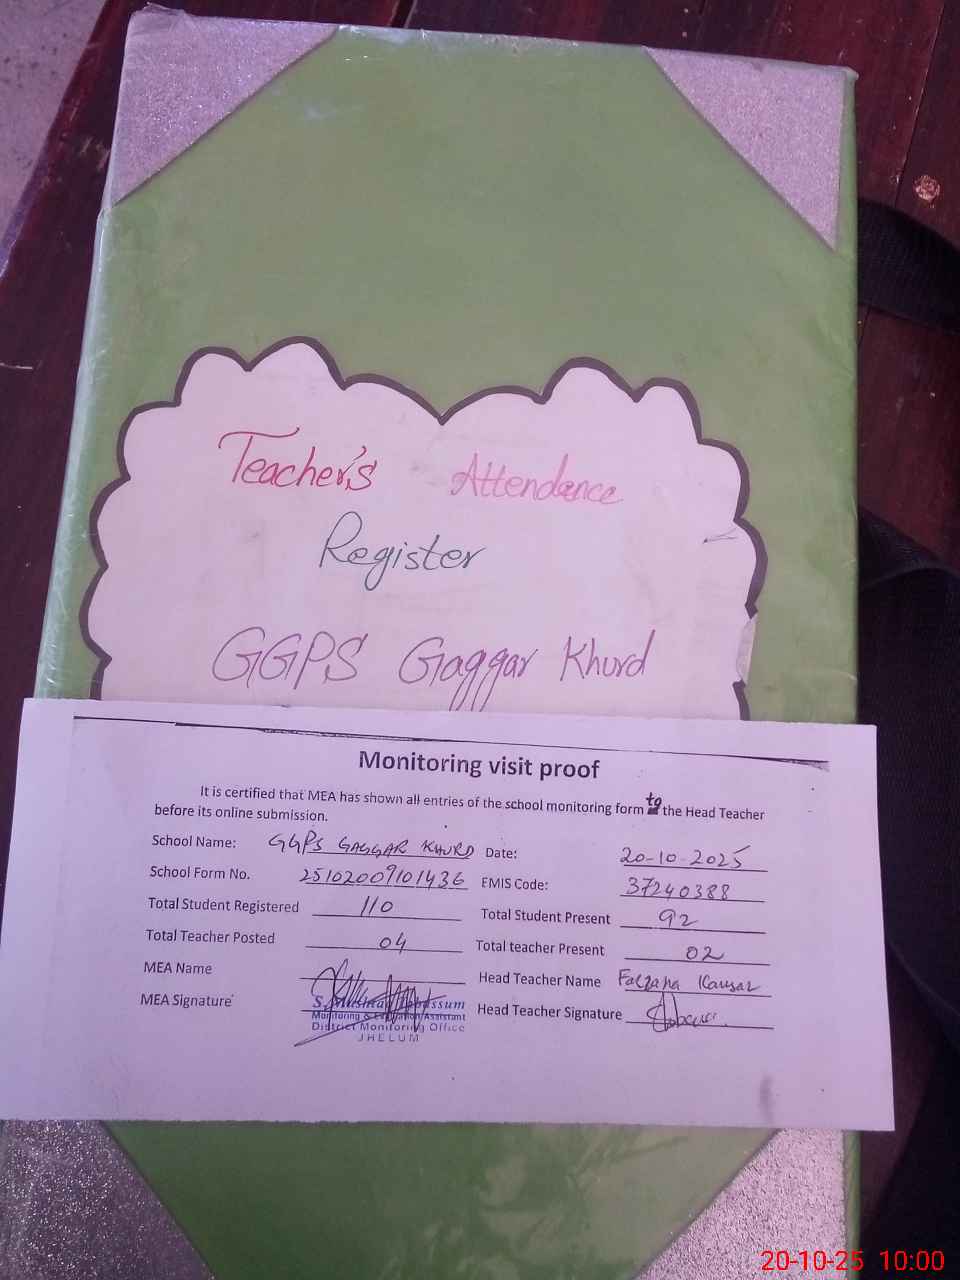 Teacher's Attendance
Register
GGPS Gaggar Khurd
Monitoring visit proof
It is certified that MEA has shown all entries of the school monitoring form to the Head Teacher
before its online submission.
School Name: GGPS GAGGAR KHURD Date: 20-10-2025
School Form No. 25102009101436 EMIS Code: 37240388
Total Student Registered 110 Total Student Present 92
Total Teacher Posted 04 Total teacher Present 02
MEA Name Head Teacher Name Farzana Kausar
MEA Signature Head Teacher Signature
Monitoring & Evaluation Assistant
District Monitoring Office
JHELUM
20-10-25 10:00